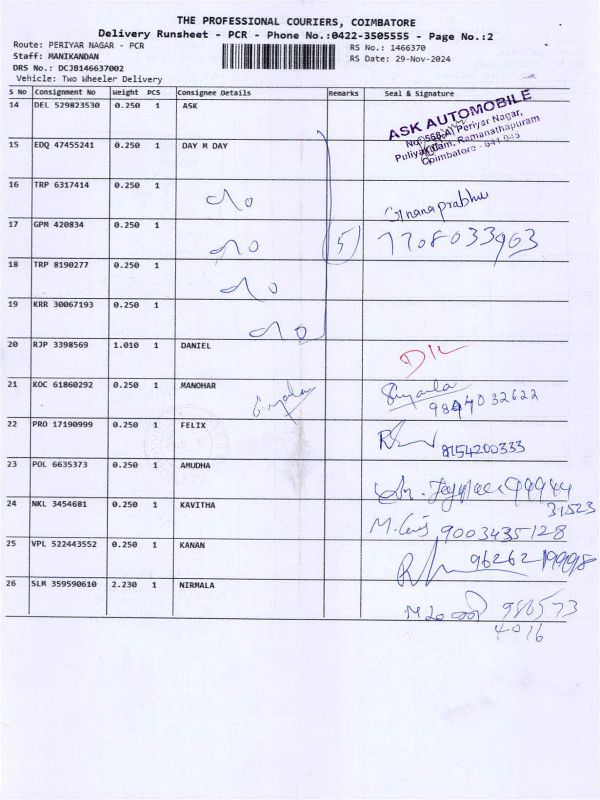 THE PROFESSIONAL COURIERS, COIMBATORE
Delivery Runsheet - PCR - Phone No.:0422-3505555 - Page No.:2
Route: PERIYAR NAGAR - PCR RS No.: 1466370
Staff: MANIKANDAN RS Date: 29-Nov-2024
DRS No.: DCJB146637002
Vehicle: Two Wheeler Delivery
S No Consignment No Weight PCS Consignee Details Remarks Seal & Signature
14 DEL 529823530 0.250 1 ASK
ASK AUTOMOBILE
No. 568-A, Periyar Nagar,
Puliyakulam, Ramanathapuram
Coimbatore - 641 045
15 EDQ 47455241 0.250 1 DAY M DAY
16 TRP 6317414 0.250 1
Gnanaprabhu
17 GPM 420834 0.250 1 5 7708033963
18 TRP 8190277 0.250 1
19 KRR 30067193 0.250 1
20 RJP 3398569 1.010 1 DANIEL
21 KOC 61860292 0.250 1 MANOHAR
22 PRO 17190999 0.250 1 FELIX 8154200333
23 POL 6635373 0.250 1 AMUDHA
24 NKL 3454681 0.250 1 KAVITHA 31523
9003435128
25 VPL 522443552 0.250 1 KANAN
26 SLM 359590610 2.230 1 NIRMALA
4016